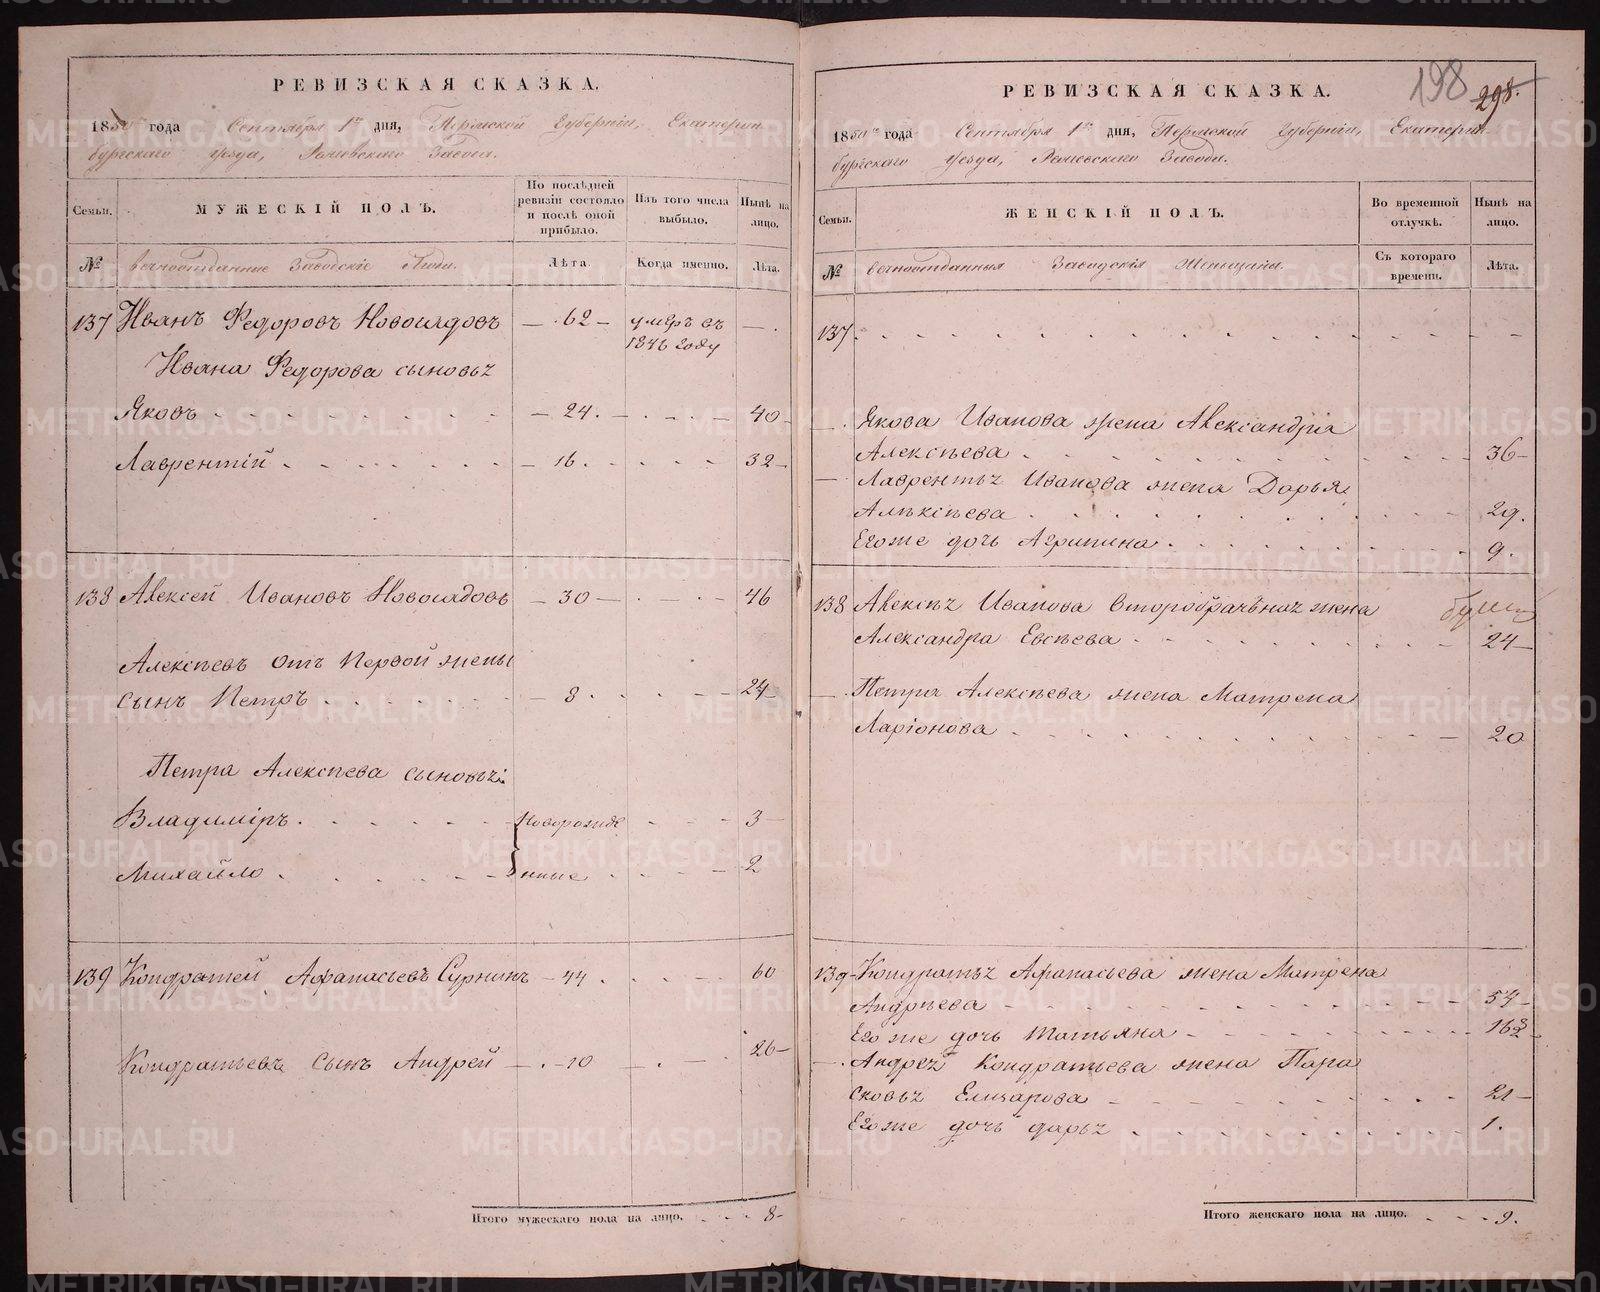 РЕВИЗСКАЯ СКАЗКА.
1850го года Сентября 1го дня, Пермской Губерніи, Екатерин
бургскаго уѣзда, Завода.
Семьи.
МУЖЕСКІЙ ПОЛЪ.
По послѣдней ревизіи состояло и послѣ оной прибыло.
Изъ того числа выбыло.
Нынѣ на лицо.
№
вѣчноотданные Заводскіе Люди.
Лѣта.
Когда именно.
Лѣта.
137 Иванъ Федоровъ Новосадовъ — 62 — умеръ въ —
1846 году
Ивана Федорова сыновьz
Яковъ — 24. — 40
Лаврентій — 16. 32
138 Алексей Ивановъ Новосадовъ — 30 — 46
Алексѣевъ отъ первой жены
сынъ Петръ — 8. — 24
Петра Алексѣева сыновья:
Владиміръ. Новорожде 3
Михайло нные 2
139 Кондратей Афанасьевъ Сурнинъ — 44 60
Кондратьевъ сынъ Андрей — 10 — 26
Итого мужескаго пола на лицо. 8
РЕВИЗСКАЯ СКАЗКА.
198 298.
1850го года Сентября 1го дня, Пермской Губерніи, Екатерин
бургскаго уѣзда, Завода.
Семьи.
ЖЕНСКІЙ ПОЛЪ.
Во временной отлучкѣ.
Нынѣ на лицо.
№
вѣчноотданныя Заводскія Женщины.
Съ котораго времени.
Лѣта.
137.
Якова Иванова жена Александра
Алексѣева 36
Лаврентья Иванова жена Дарья
Алѣксѣева 29.
Его же дочь Агрипина. 9.
138 Алексѣя Иванова второбрачная жена
Александра Евсѣева 24
Петра Алексѣева жена Матрена
Ларіонова 20
139 Кондратья Афанасьева жена Матрена
Андрѣева 54
Его же дочь Татьяна 16
Андрея Кондратьева жена Пара
сковья Елизарова 21
Его же дочь дарья 1.
Итого женскаго пола на лицо. 9.
METRIKI.GASO-URAL.RU